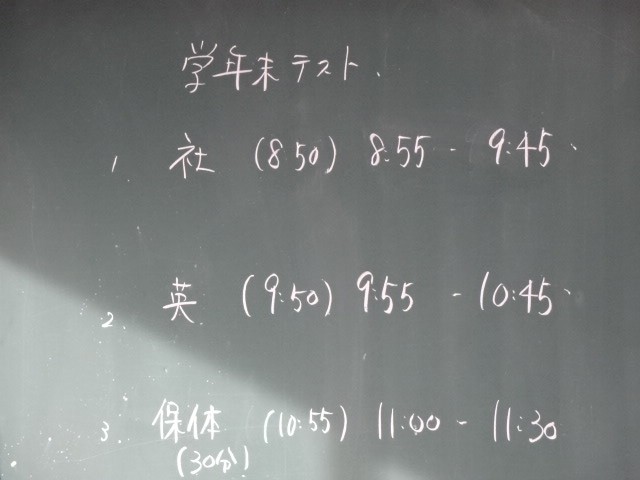 学年末テスト、
1. 社 (8 50) 8:55 - 9:45
2. 英 (9:50) 9:55 - 10:45
3. 保体 (10:55) 11:00 - 11:30
(30分)